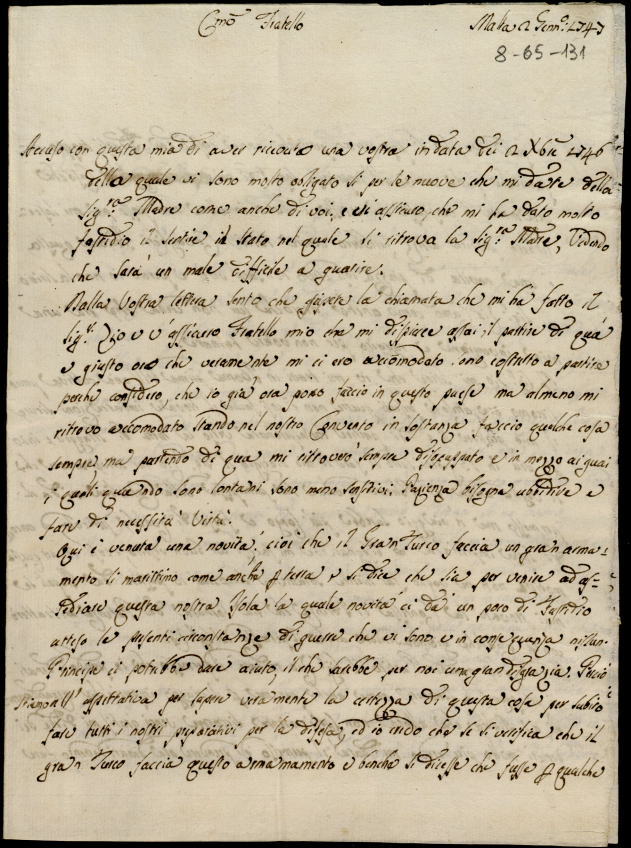 Cmo Fratello
Malta 2 Genn: 1747
8-65-131
Accuso con questa mia di aver ricevuto una vostra in data dei 2 Xbre 1746
della quale vi sono molto obligato si per le nuove che mi date della
Sigra Madre come anche di voi, e vi assicuro che mi ha dato molto
fastidio il sentire il stato nel quale si ritrova la Sigra Madre, vedendo
che sarà un male difficile a guarire.
Dalla vostra lettera sento che la chiamata che mi hà fatto il
Sigr Zio e v'assicuro Fratello mio che mi dispiace assai; il partire di quà
e giusto ora che veramente mi ci ero accomodato sono costretto a partire
perche considero, che io già ora poco faccio in questo paese ma almeno mi
ritrovo accomodato stando nel nostro Convento in sostanza faccio qualche cosa
sempre, ma partendo di qua mi ritroverò sempre e in mezzo ai guai
i quali quando sono lontani sono meno sensitivi. Pazienza bisogna ubedire e
fare di necessità virtù.
Qui è venuta una novità, cioè che il Gran Turco faccia un gran arma-
mento si marittimo come anche p terra e si dice che sia per venire ad as-
sediare questa nostra Isola la quale novità ci dà un poco di fastidio
atteso le presenti circonstanze di guerre che vi sono e in conseguenza nissun
Principe ci potrebbe dare aiuto, il che sarebbe per noi una gran disgrazia.
stiamo all' aspettativa per sapere veramente la certezza di questa cosa per subito
fare tutti i nostri preparativi per la difesa, ed io credo che se si verifica che il
gran Turco faccia questo armamamento e benche si dicesse che fusse p qualche